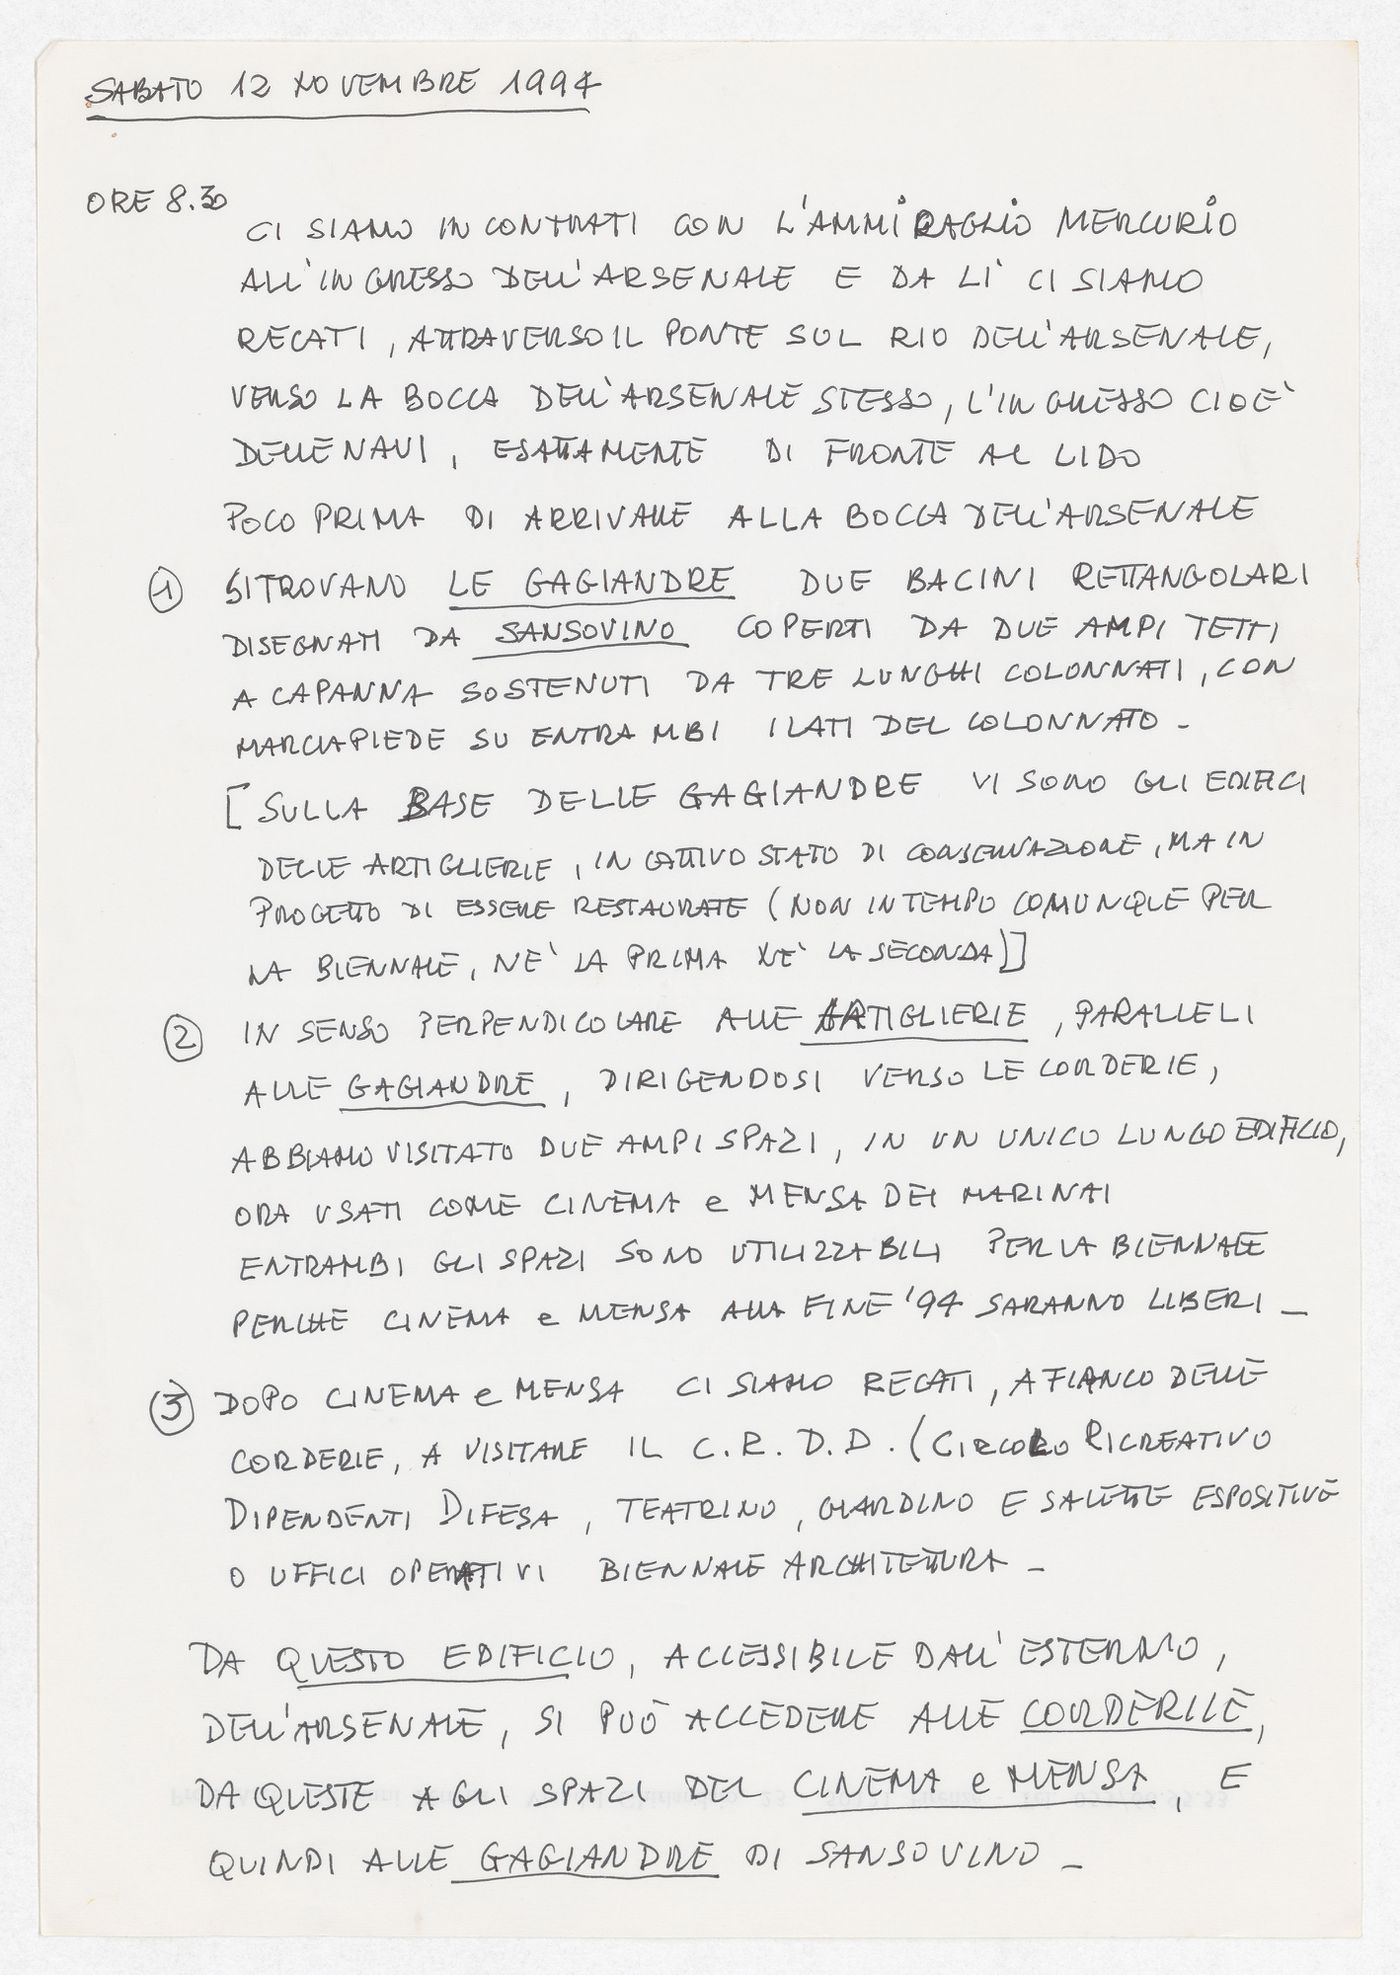 SABATO 12 NOVEMBRE 1994
ORE 8.30
CI SIAMO INCONTRATI CON L'AMMIRAGLIO MERCURIO
ALL'INGRESSO DELL'ARSENALE E DA LI' CI SIAMO
RECATI, ATTRAVERSO IL PONTE SUL RIO DELL'ARSENALE,
VERSO LA BOCCA DELL'ARSENALE STESSO, L'INGRESSO CIOE'
DELLE NAVI, ESATTAMENTE DI FRONTE AL LIDO
POCO PRIMA DI ARRIVARE ALLA BOCCA DELL'ARSENALE
① SI TROVANO LE GAGIANDRE DUE BACINI RETTANGOLARI
DISEGNATI DA SANSOVINO COPERTI DA DUE AMPI TETTI
A CAPANNA SOSTENUTI DA TRE LUNGHI COLONNATI, CON
MARCIAPIEDE SU ENTRAMBI I LATI DEL COLONNATO -
[SULLA BASE DELLE GAGIANDRE VI SONO GLI EDIFICI
DELLE ARTIGLIERIE, IN CATTIVO STATO DI CONSERVAZIONE, MA IN
PROGETTO DI ESSERE RESTAURATE (NON IN TEMPO COMUNQUE PER
LA BIENNALE, NE' LA PRIMA NE' LA SECONDA)]
② IN SENSO PERPENDICOLARE ALLE ARTIGLIERIE, PARALLELI
ALLE GAGIANDRE, DIRIGENDOSI VERSO LE CORDERIE,
ABBIAMO VISITATO DUE AMPI SPAZI, IN UN UNICO LUNGO EDIFICIO,
ORA USATI COME CINEMA e MENSA DEI MARINAI
ENTRAMBI GLI SPAZI SONO UTILIZZABILI PER LA BIENNALE
PERCHE CINEMA e MENSA ALLA FINE '94 SARANNO LIBERI -
③ DOPO CINEMA e MENSA CI SIAMO RECATI, A FIANCO DELLE
CORDERIE, A VISITARE IL C.R.D.D. (CIRCOLO RICREATIVO
DIPENDENTI DIFESA, TEATRINO, GIARDINO E SALETTE ESPOSITIVE
O UFFICI OPERATIVI BIENNALE ARCHITETTURA -
DA QUESTO EDIFICIO, ACCESSIBILE DALL'ESTERNO,
DELL'ARSENALE, SI PUÒ ACCEDERE ALLE CORDERIE,
DA QUESTE AGLI SPAZI DEL CINEMA e MENSA, E
QUINDI ALLE GAGIANDRE DI SANSOVINO -